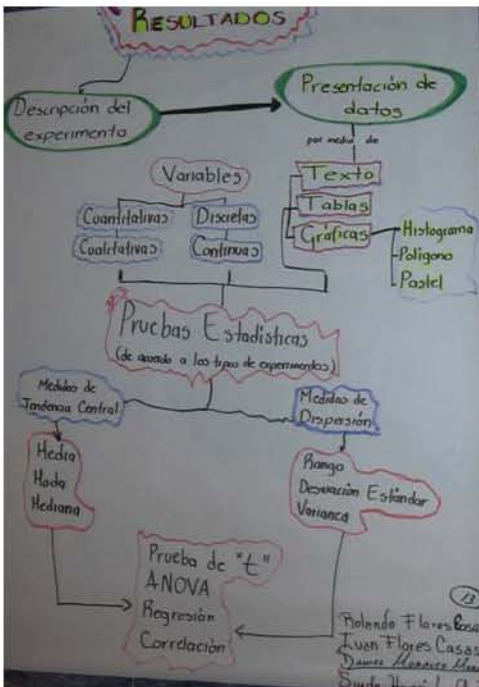 RESULTADOS
Descripción del
experimento
Presentación de
datos
por medio de
Texto
Tablas
Gráficas
Histograma
Polígono
Pastel
Variables
Cuantitativas
Cualitativas
Discretas
Continuas
Pruebas Estadísticas
(de acuerdo a los tipos de experimentos)
Medidas de
Tendencia Central
Medidas de
Dispersión
Media
Moda
Mediana
Rango
Desviación Estándar
Varianza
Prueba de "t"
ANOVA
Regresión
Correlación
13
Rolando Flores
Juan Flores Casas